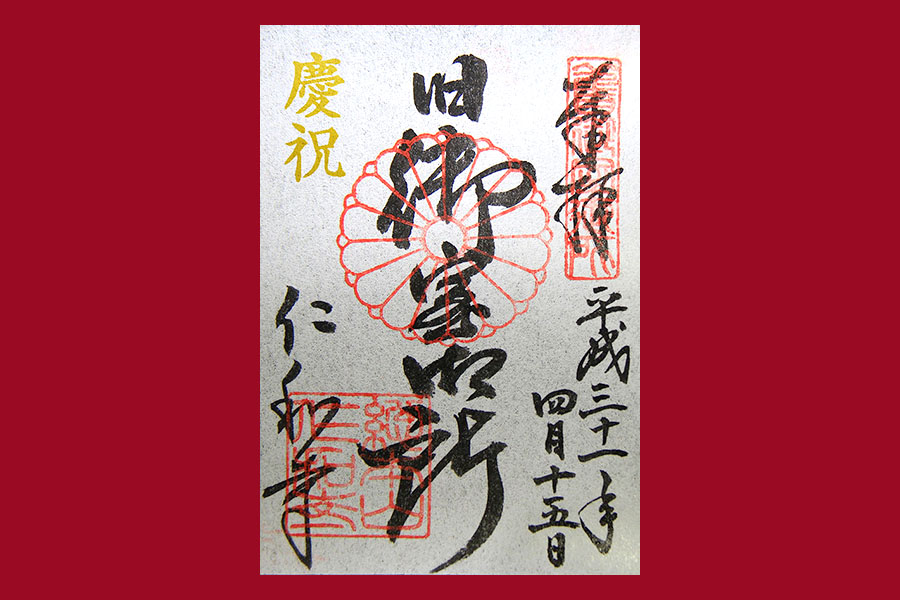 奉拝
平成三十一年
四月十五日
旧御室御所
慶祝
仁和寺